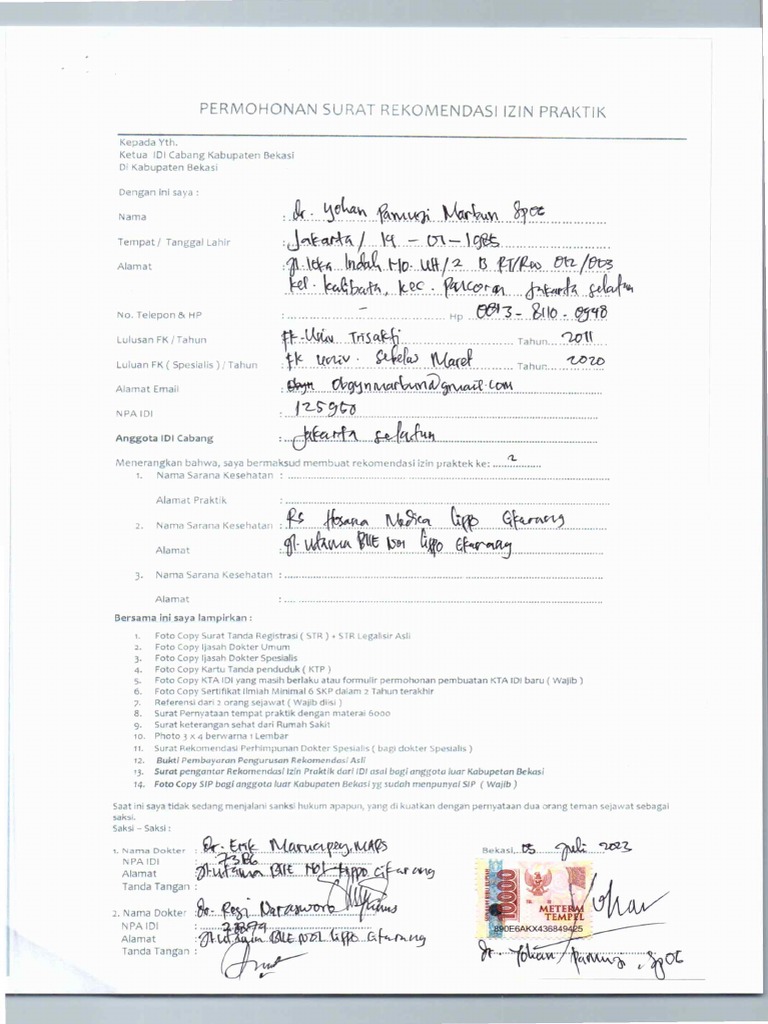 PERMOHONAN SURAT REKOMENDASI IZIN PRAKTIK
Kepada Yth.
Ketua IDI Cabang Kabupaten Bekasi
Di Kabupaten Bekasi
Dengan ini saya :
Nama : dr. Yohan Pamuji Marbun SpOG
Tempat / Tanggal Lahir : Jakarta / 19 - 01 - 1985
Alamat : Jl. Loka Indah No. /2 B RT/RW 002 /003
kel. Kalibata, kec. Pancoran Jakarta Selatan
No. Telepon & HP : - Hp 0813 - 8110 - 0948
Lulusan FK / Tahun : FK-Univ Trisakti Tahun 2011
Luluan FK ( Spesialis ) / Tahun : FK Univ. Sebelas Maret Tahun 2020
Alamat Email : obgynmarbun@gmail.com
NPA IDI : 125950
Anggota IDI Cabang : Jakarta Selatan
Menerangkan bahwa, saya bermaksud membuat rekomendasi izin praktek ke: 2
1. Nama Sarana Kesehatan :
Alamat Praktik :
2. Nama Sarana Kesehatan : RS Hosana Medica Lippo Cikarang
Alamat : Jl. Utama BIIE No1 Lippo Cikarang
3. Nama Sarana Kesehatan :
Alamat :
Bersama ini saya lampirkan :
1. Foto Copy Surat Tanda Registrasi ( STR ) + STR Legalisir Asli
2. Foto Copy Ijasah Dokter Umum
3. Foto Copy Ijasah Dokter Spesialis
4. Foto Copy Kartu Tanda penduduk ( KTP )
5. Foto Copy KTA IDI yang masih berlaku atau formulir permohonan pembuatan KTA IDI baru ( Wajib )
6. Foto Copy Sertifikat Ilmiah Minimal 6 SKP dalam 2 Tahun terakhir
7. Referensi dari 2 orang sejawat ( Wajib diisi )
8. Surat Pernyataan tempat praktik dengan materai 6000
9. Surat keterangan sehat dari Rumah Sakit
10. Photo 3 x 4 berwarna 1 Lembar
11. Surat Rekomendasi Perhimpunan Dokter Spesialis ( bagi dokter Spesialis )
12. Bukti Pembayaran Pengurusan Rekomendasi Asli
13. Surat pengantar Rekomendasi Izin Praktik dari IDI asal bagi anggota luar Kabupetan Bekasi
14. Foto Copy SIP bagi anggota luar Kabupaten Bekasi yg sudah menpunyai SIP ( Wajib )
Saat ini saya tidak sedang menjalani sanksi hukum apapun, yang di kuatkan dengan pernyataan dua orang teman sejawat sebagai
saksi.
Saksi – Saksi :
1. Nama Dokter : Dr. Erik MARS
NPA IDI : 7386
Alamat : Jl. Utama BIIE No1 Lippo Cikarang
Tanda Tangan :
Bekasi, 05 Juli 2023
2. Nama Dokter : dr.
NPA IDI :
Alamat : Jl. Utama BIIE No1 Lippo Cikarang
Tanda Tangan :
10000
METERAI
TEMPEL
890E6AKX436849425
Yohan
dr. Yohan Pamuji, SpOG